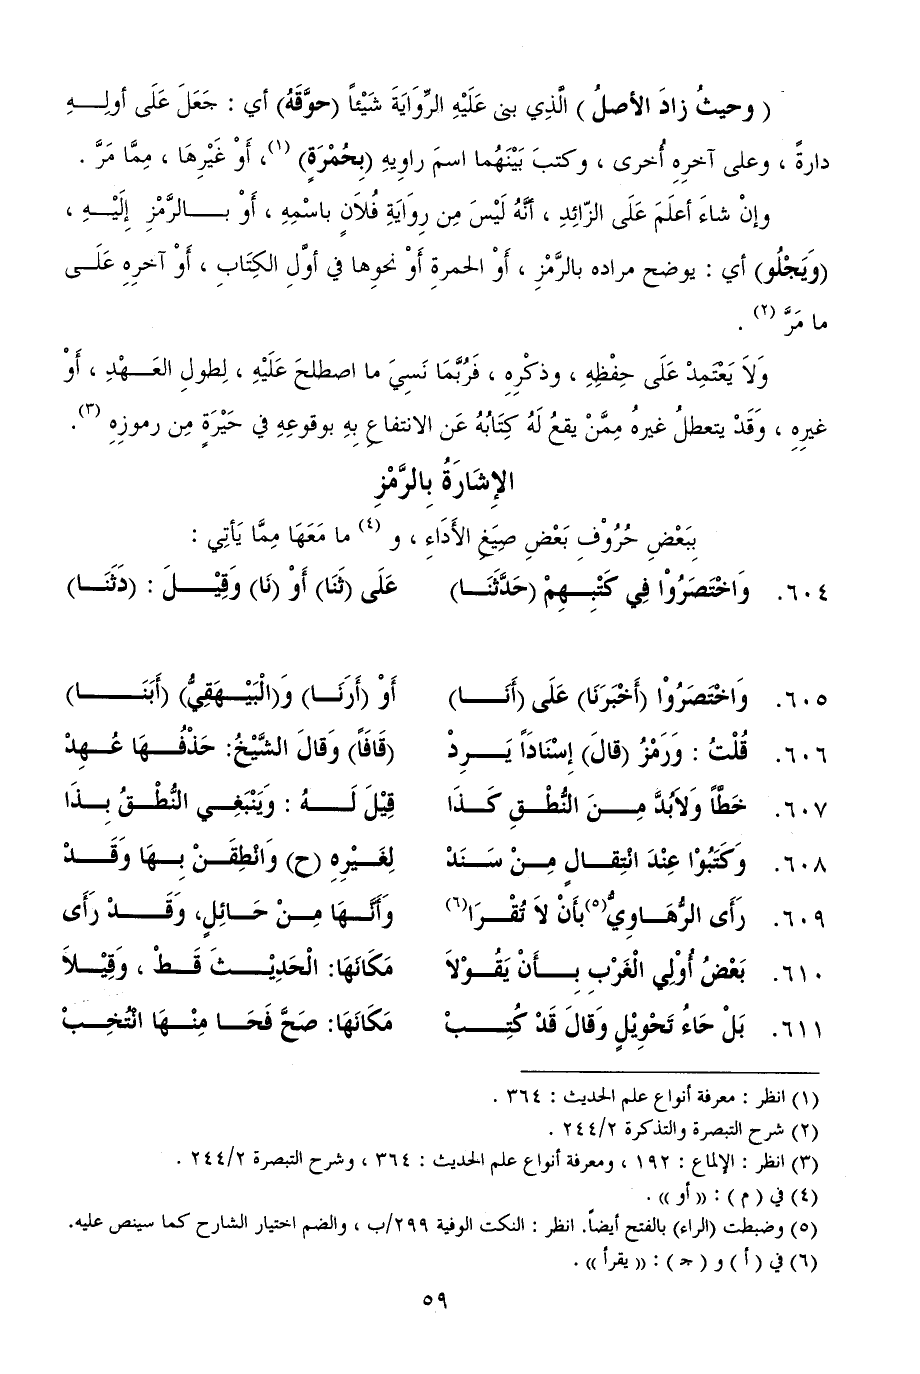 ( وحيثُ زادَ الأصلُ ) الَّذِي بنى عَلَيْهِ الرِّوَايَةَ شَيْئاً (حوَّقَهُ) أي : جَعَلَ عَلَى أولِـهِ
دارةً ، وعلى آخرِهِ أُخرى ، وكتبَ بَيْنَهُما اسمَ راويهِ (بِحُمْرَةٍ) (١)، أَوْ غَيْرِهَا ، مِمَّا مَرَّ .
وإنْ شاءَ أعلَمَ عَلَى الزّائِدِ ، أنَّهُ لَيْسَ مِن رِوَايَةِ فُلاَنٍ باسْمِهِ ، أَوْ بـالرَّمْزِ إِلَيْـهِ ،
(وَيَجْلُو) أي : يوضح مراده بالرَّمْزِ ، أَوْ الحمرةِ أَوْ نحوِها فِي أوَّلِ الكِتَابِ ، أَوْ آخرِهِ عَلَـى
ما مَرَّ (٢) .
وَلاَ يَعْتَمِدْ عَلَى حِفْظِهِ ، وذكْرِهِ ، فَرُبَّمَا نَسِيَ ما اصطلحَ عَلَيْهِ ، لِطولِ العَـهْدِ ، أَوْ
غيرِهِ ، وَقَدْ يتعطلُ غيرهُ مِمَّنْ يقعُ لَهُ كِتَابُهُ عَنِ الانتفاعِ بِهِ بوقوعِهِ فِي حَيْرَةٍ مِن رموزِهِ (٣).
الإِشَارَةُ بِالرَّمْزِ
بِبَعْضِ حُرُوْفِ بَعْضِ صِيَغِ الأَدَاءِ ، و (٤) ما مَعَهَا مِمَّا يَأتِي :
٦٠٤. وَاخْتَصَرُوْا فِي كَتْبِـهِمْ (حَدَّثَنَـا) عَلَى (ثَنَا) أَوْ (نَا) وَقِيْـلَ : (دَثَنَـا)
٦٠٥. وَاخْتَصَرُوْا (أَخْبَرَنَا) عَلَى (أَنَـا) أَوْ (أَرَنَـا) وَ(الْبَيْـهَقِيُّ) (أَبَنَـا)
٦٠٦. قُلْتُ : وَرَمْزُ (قالَ) إِسْنَاداً يَـرِدْ (قَافَاً) وَقالَ الشَّيْخُ: حَذْفُـهَا عُـهِدْ
٦٠٧. خَطَّاً وَلاَبُدَّ مِـنَ النُّطْـقِ كَـذَا قِيْلَ لَـهُ : وَيَنْبَغِـي النُّطْـقُ بِـذَا
٦٠٨. وَكَتَبُوْا عِنْدَ انْتِقـالٍ مِـنْ سَـنَدْ لِغَـيْرِهِ (ح) وَانْطِقَـنْ بِـهَا وَقَـدْ
٦٠٩. رَأَى الرُّهَـاوِيُّ(٥)بأَنْ لاَ تُقْـرَا(٦) وَأَنَّـهَا مِـنْ حَـائِلٍ، وَقَـدْ رَأَى
٦١٠. بَعْضُ أُوْلِي الْغَرْبِ بـأَنْ يَقُـوْلاَ مَكَانَهَا: الْحَدِيْـثَ قَـطْ ، وَقِيْـلاَ
٦١١. بَلْ حَاءُ تَحْوِيْلٍ وَقالَ قَدْ كُتِـبْ مَكَانَهَا: صَحَّ فَحَـا مِنْـهَا انْتُخِـبْ
(١) انظر : معرفة أنواع علم الحديث : ٣٦٤ .
(٢) شرح التبصرة والتذكرة ٢٤٤/٢ .
(٣) انظر : الإلماع : ١٩٢ ، ومعرفة أنواع علم الحديث : ٣٦٤ ، وشرح التبصرة ٢٤٤/٢ .
(٤) في ( م ) : (( أو )) .
(٥) وضبطت (الراء) بالفتح أيضاً. انظر : النكت الوفية ٢٩٩/ب ، والضم اختيار الشارح كما سينص عليه.
(٦) في ( أ ) و ( ﺣ ) : (( يقرأ )) .
٥٩